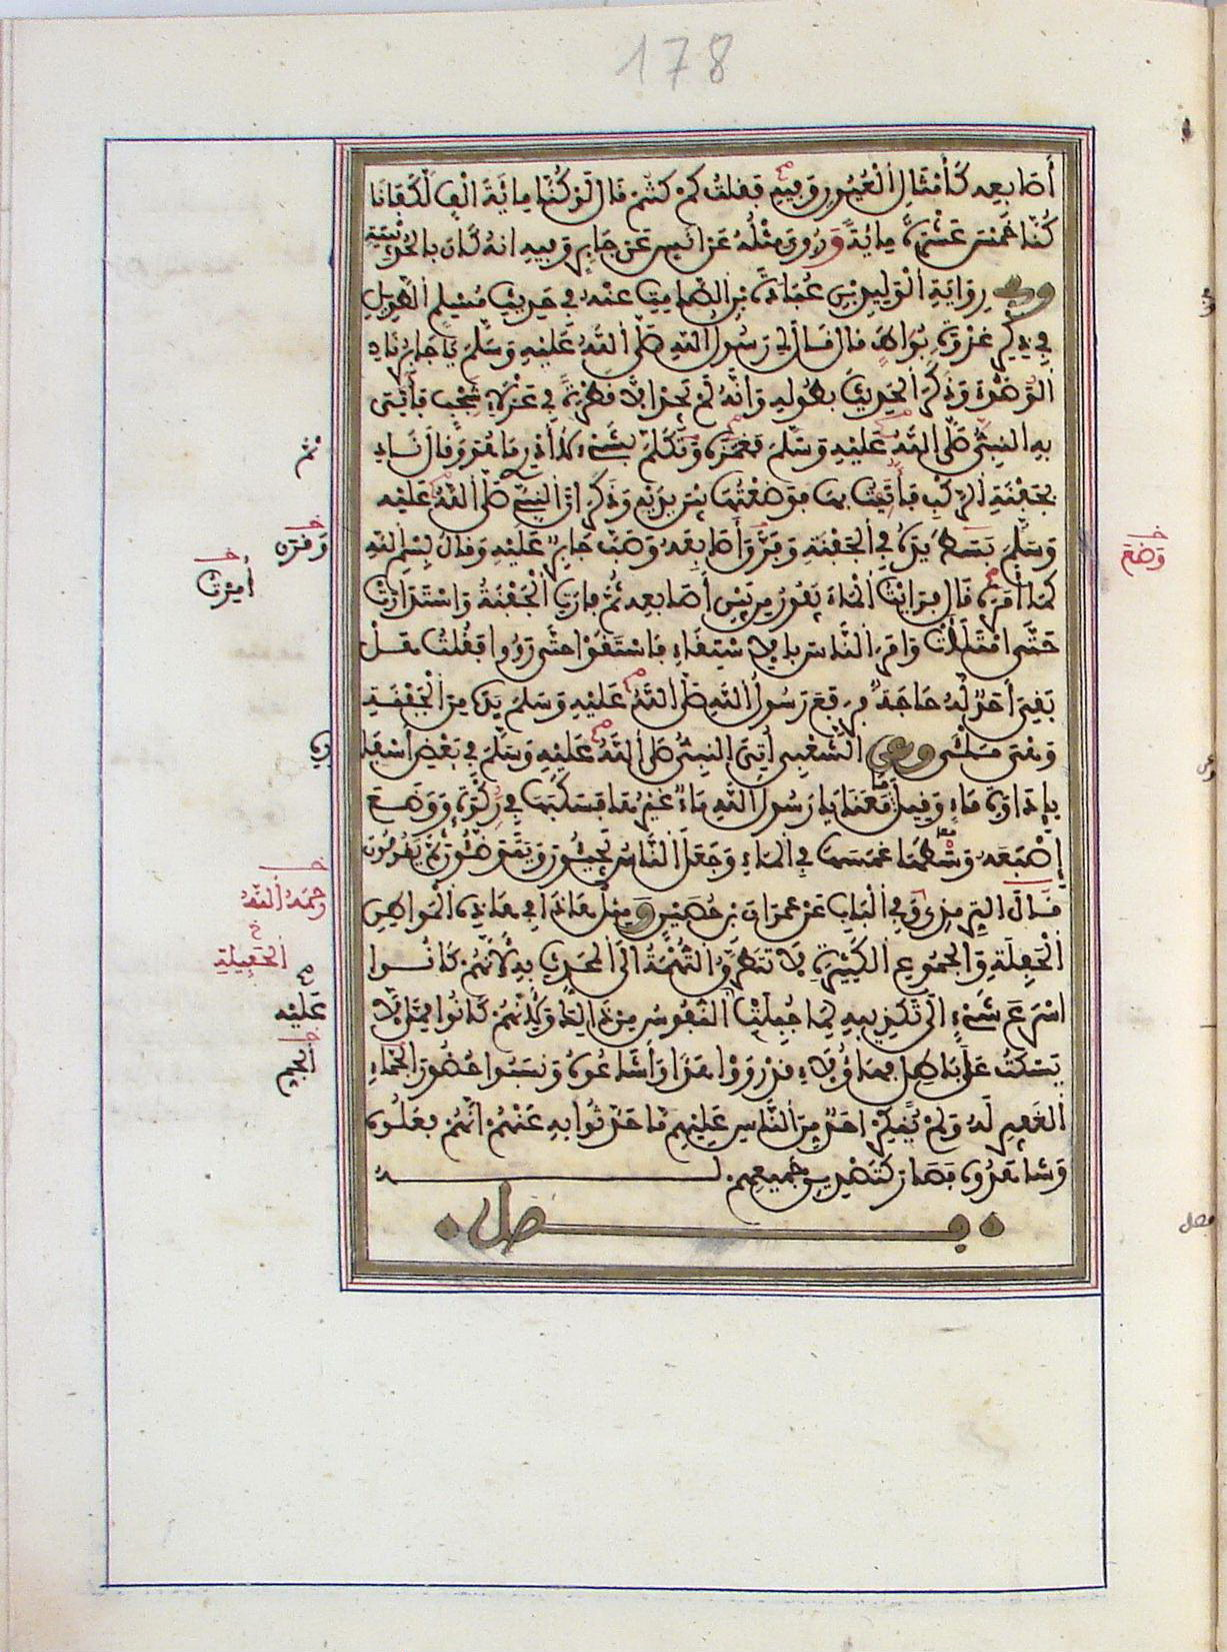 178
أَصَابِعِهِ كَأَمْثَالِ الْعُيُونِ وَفِيهِ فَقُلْتُ كَمْ كُنْتُمْ قَالَ لَوْ كُنَّا مِائَةَ أَلْفٍ لَكَفَانَا
كُنَّا خَمْسَ عَشْرَةَ مِائَةً وَرُوِيَ مِثْلُهُ عَنْ أَنَسٍ عَنْ جَابِرٍ وَفِيهِ أَنَّهُ كَانَ بِالْحُدَيْبِيَةِ
وفي رِوَايَةِ الْوَلِيدِ بْنِ عُبَادَةَ بْنِ الصَّامِتِ عَنْهُ فِي حَدِيثِ مُسْلِمٍ الطَّوِيلِ
فِي ذِكْرِ غَزْوَةِ بُوَاطَ قَالَ قَالَ لِي رَسُولُ اللَّهِ صَلَّى اللَّهُ عَلَيْهِ وَسَلَّمَ يَا جَابِرُ نَادِ
الْوَضُوءَ وَذَكَرَ الْحَدِيثَ بِطُولِهِ وَأَنَّهُ لَمْ يَجِدْ إِلَّا قَطْرَةً فِي عَزْلَاءِ شَجْبٍ فَأُتِيَ
بِهِ النَّبِيُّ صَلَّى اللَّهُ عَلَيْهِ وَسَلَّمَ فَغَمَزَهُ وَتَكَلَّمَ بِشَيْءٍ لَا أَدْرِي مَا هُوَ وَقَالَ نَادِ
بِجَفْنَةِ الرَّكْبِ فَأَتَيْتُ بِهَا فَوَضَعْتُهَا بَيْنَ يَدَيْهِ وَذَكَرَ أَنَّ النَّبِيَّ صَلَّى اللَّهُ عَلَيْهِ
وَسَلَّمَ بَسَطَ يَدَهُ فِي الْجَفْنَةِ وَفَرَّقَ أَصَابِعَهُ وَصَبَّ جَابِرٌ عَلَيْهِ وَقَالَ بِسْمِ اللَّهِ
كَمَا أَمَرَهُ قَالَ فَرَأَيْتُ الْمَاءَ يَفُورُ مِنْ بَيْنِ أَصَابِعِهِ ثُمَّ فَارَتِ الْجَفْنَةُ وَاسْتَدَارَتْ
حَتَّى امْتَلَأَتْ وَأَمَرَ النَّاسَ بِالِاسْتِقَاءِ فَاسْتَقَوْا حَتَّى رَوُوا فَقُلْتُ هَلْ
بَقِيَ أَحَدٌ لَهُ حَاجَةٌ فَرَفَعَ رَسُولُ اللَّهِ صَلَّى اللَّهُ عَلَيْهِ وَسَلَّمَ يَدَهُ مِنَ الْجَفْنَةِ
وَهْيَ مَلْأَى وعن الشَّعْبِيِّ أُتِيَ النَّبِيُّ صَلَّى اللَّهُ عَلَيْهِ وَسَلَّمَ فِي بَعْضِ أَسْفَارِهِ
بِإِدَاوَةِ مَاءٍ وَقِيلَ مَا مَعَنَا يَا رَسُولَ اللَّهِ مَاءٌ غَيْرُهَا فَسَكَبَهَا فِي رَكْوَةٍ وَوَضَعَ
إِصْبَعَهُ وَسْطَهَا وَغَمَسَهَا فِي الْمَاءِ وَجَعَلَ النَّاسُ يَجِيئُونَ وَيَتَوَضَّئُونَ ثُمَّ يَقُومُونَ
قَالَ التِّرْمِذِيُّ وَفِي الْبَابِ عَنْ عِمْرَانَ بْنِ حُصَيْنٍ وَمِثْلُ هَذَا فِي هَذِهِ الْمَوَاطِنِ
الْحَفِلَةِ وَالْجُمُوعِ الْكَثِيرَةِ لَا تَتَطَرَّقُ التُّهْمَةُ إِلَى الْمُحَدِّثِ بِهِ لِأَنَّهُمْ كَانُوا
أَسْرَعَ شَيْءٍ إِلَى تَكْذِيبِهِ لِمَا جُبِلَتْ النُّفُوسُ مِنْ ذَلِكَ وَلِأَنَّهُمْ كَانُوا مِمَّنْ لَا
يَسْكُتُ عَلَى بَاطِلٍ فَهَؤُلَاءِ قَدْ رَوَوْا هَذَا وَأَشَاعُوهُ وَنَسَبُوا حُضُورَ الْجَمَّاءِ
الْغَفِيرِ لَهُ وَلَمْ يُنْكِرْ أَحَدٌ مِنَ النَّاسِ عَلَيْهِمْ مَا حَدَّثُوا بِهِ عَنْهُمْ أَنَّهُمْ فَعَلُوهُ
وَشَاهَدُوهُ فَصَارَ كَتَصْدِيقِ جَمِيعِهِمْ لَهُ
فصل
ثم
وَفَرَّقَ
أُمِرْتُ
وَضَعَ
رَحِمَهُ اللَّهُ
الْحَفِيلَةِ
عَلَيْهِ
الْجَمِّ